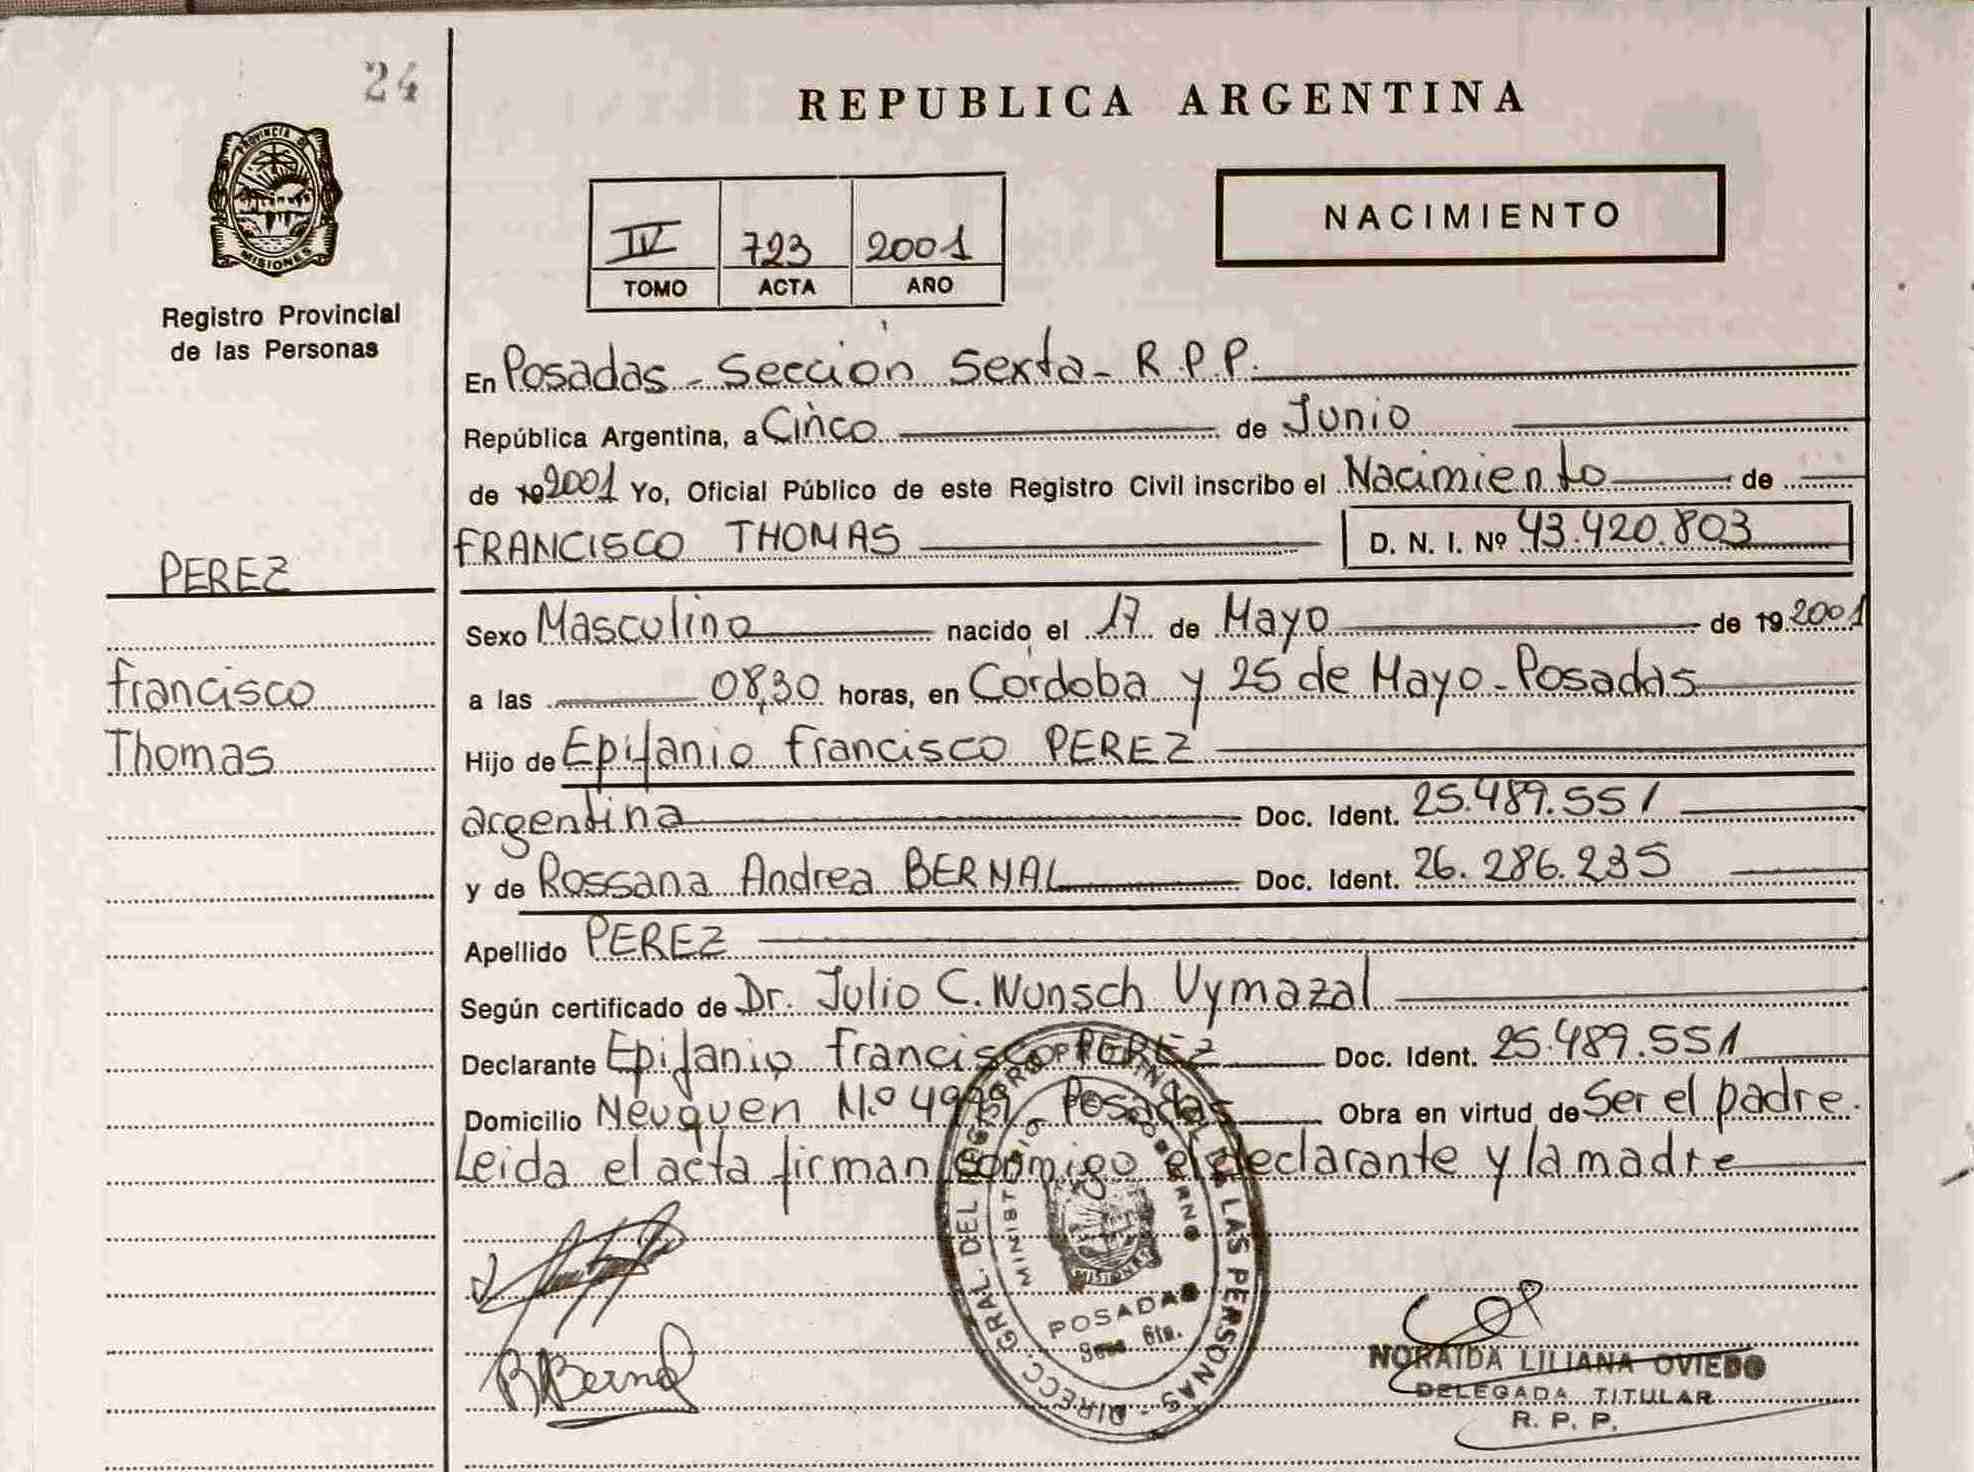 24
REPUBLICA ARGENTINA
PROVINCIA DE
MISIONES
Registro Provincial
de las Personas
IV 723 2001
TOMO ACTA AÑO
NACIMIENTO
En Posadas - Sección Sexta - R.P.P.
República Argentina, a Cinco de Junio
de 19 2001 Yo, Oficial Público de este Registro Civil inscribo el Nacimiento de
FRANCISCO THOMAS D. N. I. Nº 43.420.803
PEREZ
Sexo Masculino nacido el 17 de Mayo de 19 2001
Francisco
a las 08,30 horas, en Córdoba y 25 de Mayo - Posadas
Thomas
Hijo de Epifanio Francisco PEREZ
argentina Doc. Ident. 25.489.551
y de Rossana Andrea BERNAL Doc. Ident. 26.286.235
Apellido PEREZ
Según certificado de Dr. Julio C. Wunsch Vymazal
Declarante Epifanio Francisco PEREZ Doc. Ident. 25.489.551
Domicilio Neuquen N.º Posadas Obra en virtud de Ser el padre.
Leida el acta firman conmigo el declarante y la madre
DIRECC. GRAL. DEL REGISTRO PROVINCIAL DE LAS PERSONAS
MINISTERIO DE GOBIERNO
MISIONES
POSADAS
6ta.
Bernal
NORAIDA LILIANA OVIEDO
DELEGADA TITULAR
R. P. P.